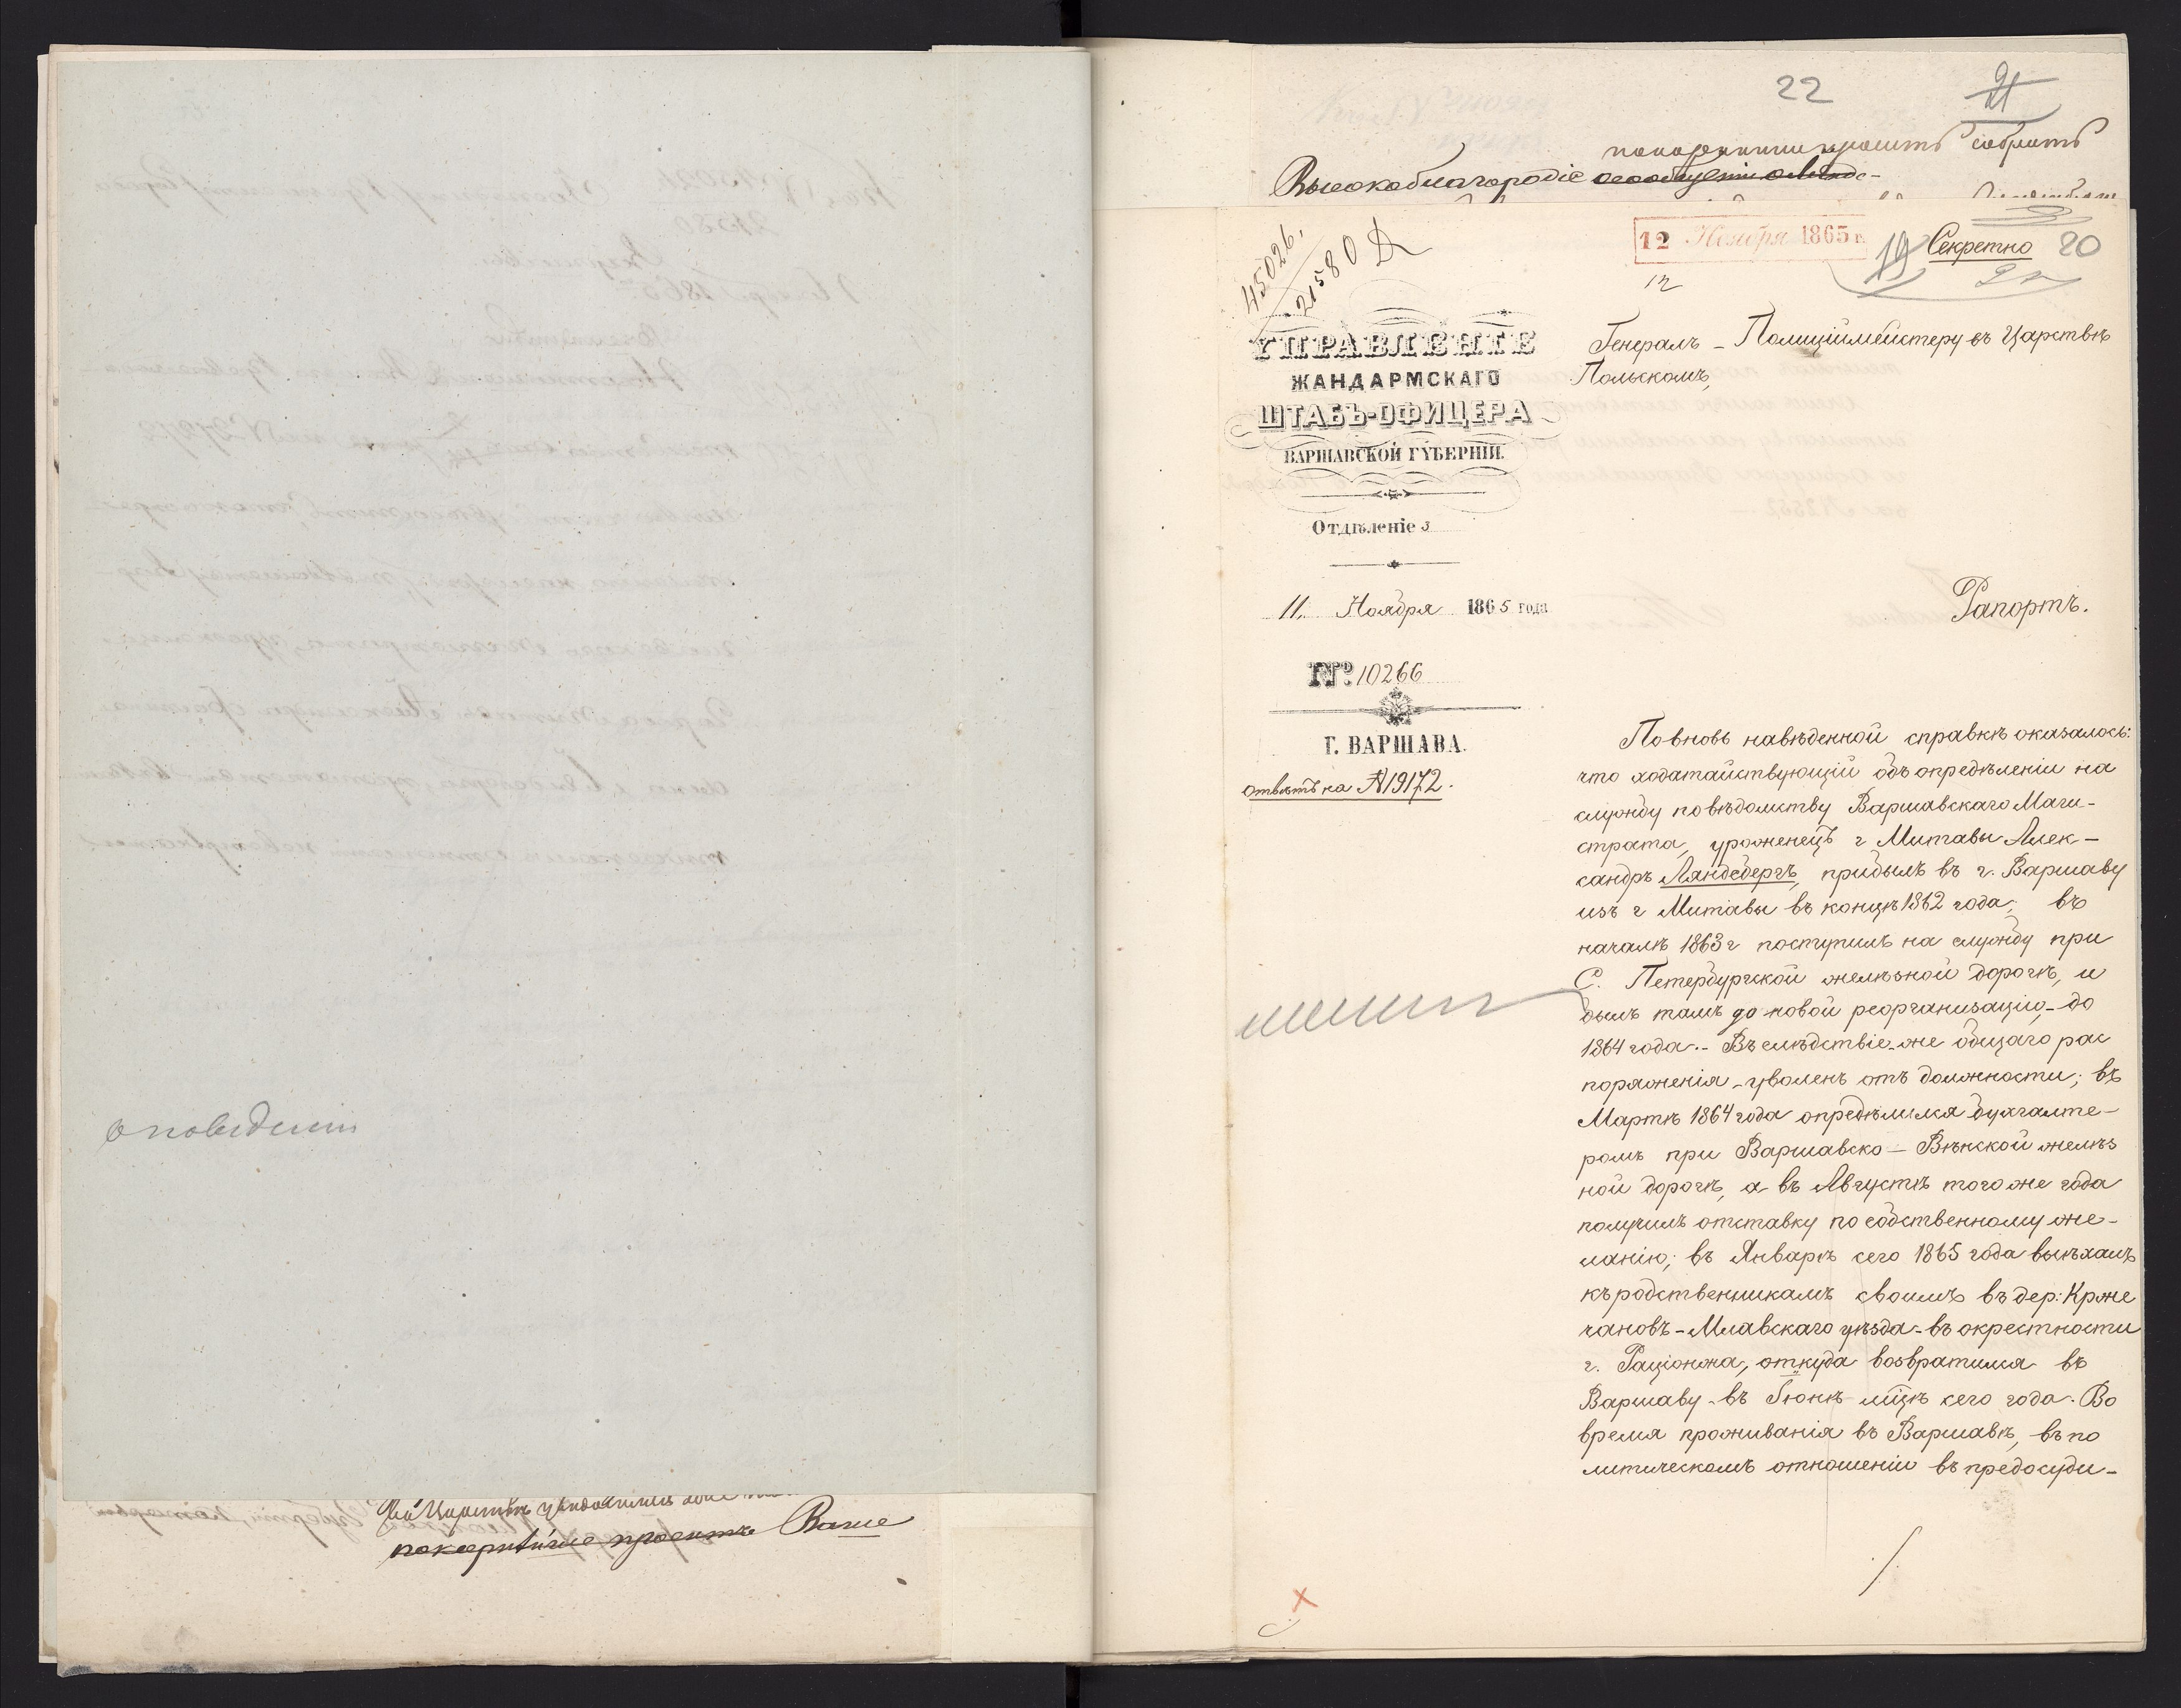 о поведенiи
покорнѣйше проситъ Ваше
22
21
покорнѣйше просить собрать
Высокоблагородіе
45026.
21580 Д
12 Ноября 1865 г.
12
19 Секретно 20
УПРАВЛЕНІЕ
ЖАНДАРМСКАГО
ШТАБЪ-ОФИЦЕРА
ВАРШАВСКОЙ ГУБЕРНІИ.
Отдѣленіе 3
11. Ноября 1865 года
№ 10266
Г. ВАРШАВА.
отвѣтъ на №19172.
Генералъ-Полиціймейстеру въ Царствѣ
Польскомъ,
Рапортъ.
По вновь навѣденной справкѣ оказалось:
что ходатайствующій объ опредѣленіи на
службу по вѣдомству Варшавскаго Маги-
страта, уроженецъ г Митавы Алек-
сандръ Ляндсбергъ, прибылъ въ г. Варшаву
изъ г Митавы въ концѣ 1862 года; въ
началѣ 1863 г поступилъ на службу при
С. Петербургской желѣзной дорогѣ, и
былъ тамъ до новой реорганизаціи-до
1864 года.- Въ слѣдствіе-же общаго рас
поряженія-уволенъ отъ должности; въ
Мартѣ 1864 года опредѣлился бухгалте-
ромъ при Варшавско-Вѣнской желѣз
ной дорогѣ, а въ Августѣ того же года
получилъ отставку по собственному же-
ланію; въ Январѣ сего 1865 года выѣхалъ
къ родственникамъ своимъ въ дер: Крже
чановъ-Млавскаго уѣзда-въ окрестности
г. Раціонжа, откуда возвратился въ
Варшаву-въ Іюнѣ мцѣ сего года. Во
время проживанія въ Варшавѣ, въ по
литическомъ отношеніи въ предосуди-
./.